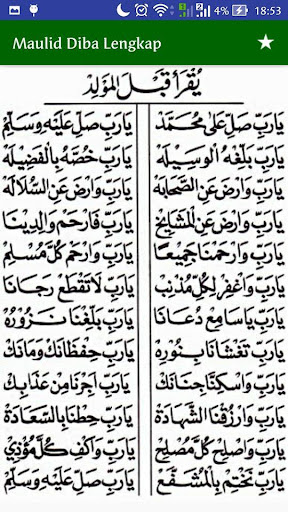 4% 18:53
Maulid Diba Lengkap
يُقْرَأُ قَبْلَ المَوْلِدْ
يَارَبِّ صَلِّ عَلَى مُحَمَّدْ يَارَبِّ صَلِّ عَلَيْهِ وَسَلِّمْ
يَارَبِّ بَلِّغْهُ الْوَسِيْلَهْ يَارَبِّ خُصَّهُ بِالْفَضِيْلَهْ
يَارَبِّ وَارْضَ عَنِ الصَّحَابَهْ يَارَبِّ وَارْضَ عَنِ السُّلَالَهْ
يَارَبِّ وَارْضَ عَنِ الْمَشَايِخْ يَارَبِّ فَارْحَمْ وَالِدِيْنَا
يَارَبِّ وَارْحَمْنَا جَمِيْعًا يَارَبِّ وَارْحَمْ كُلَّ مُسْلِمْ
يَارَبِّ وَاغْفِرْ لِكُلِّ مُذْنِبْ يَارَبِّ لَاتَقْطَعْ رَجَانَا
يَارَبِّ يَاسَامِعْ دُعَانَا يَارَبِّ بَلِّغْنَا نَزُوْرُهْ
يَارَبِّ تَغْشَانَا بِنُوْرِهْ يَارَبِّ حِفْظَانَكْ وَمَانَكْ
يَارَبِّ وَاسْكِنَّا جِنَانَكْ يَارَبِّ اَجِرْنَا مِنْ عَذَابِكْ
يَارَبِّ وَارْزُقْنَا الشَّهَادَةْ يَارَبِّ حِطْنَا بِالسَّعَادَةْ
يَارَبِّ وَاصْلِحْ كُلَّ مُصْلِحْ يَارَبِّ وَاكْفِ كُلَّ مُؤْذِيْ
يَارَبِّ نَخْتِمْ بِالْمُشَفَّعْ يَارَبِّ صَلِّ عَلَيْهِ وَسَلِّمْ